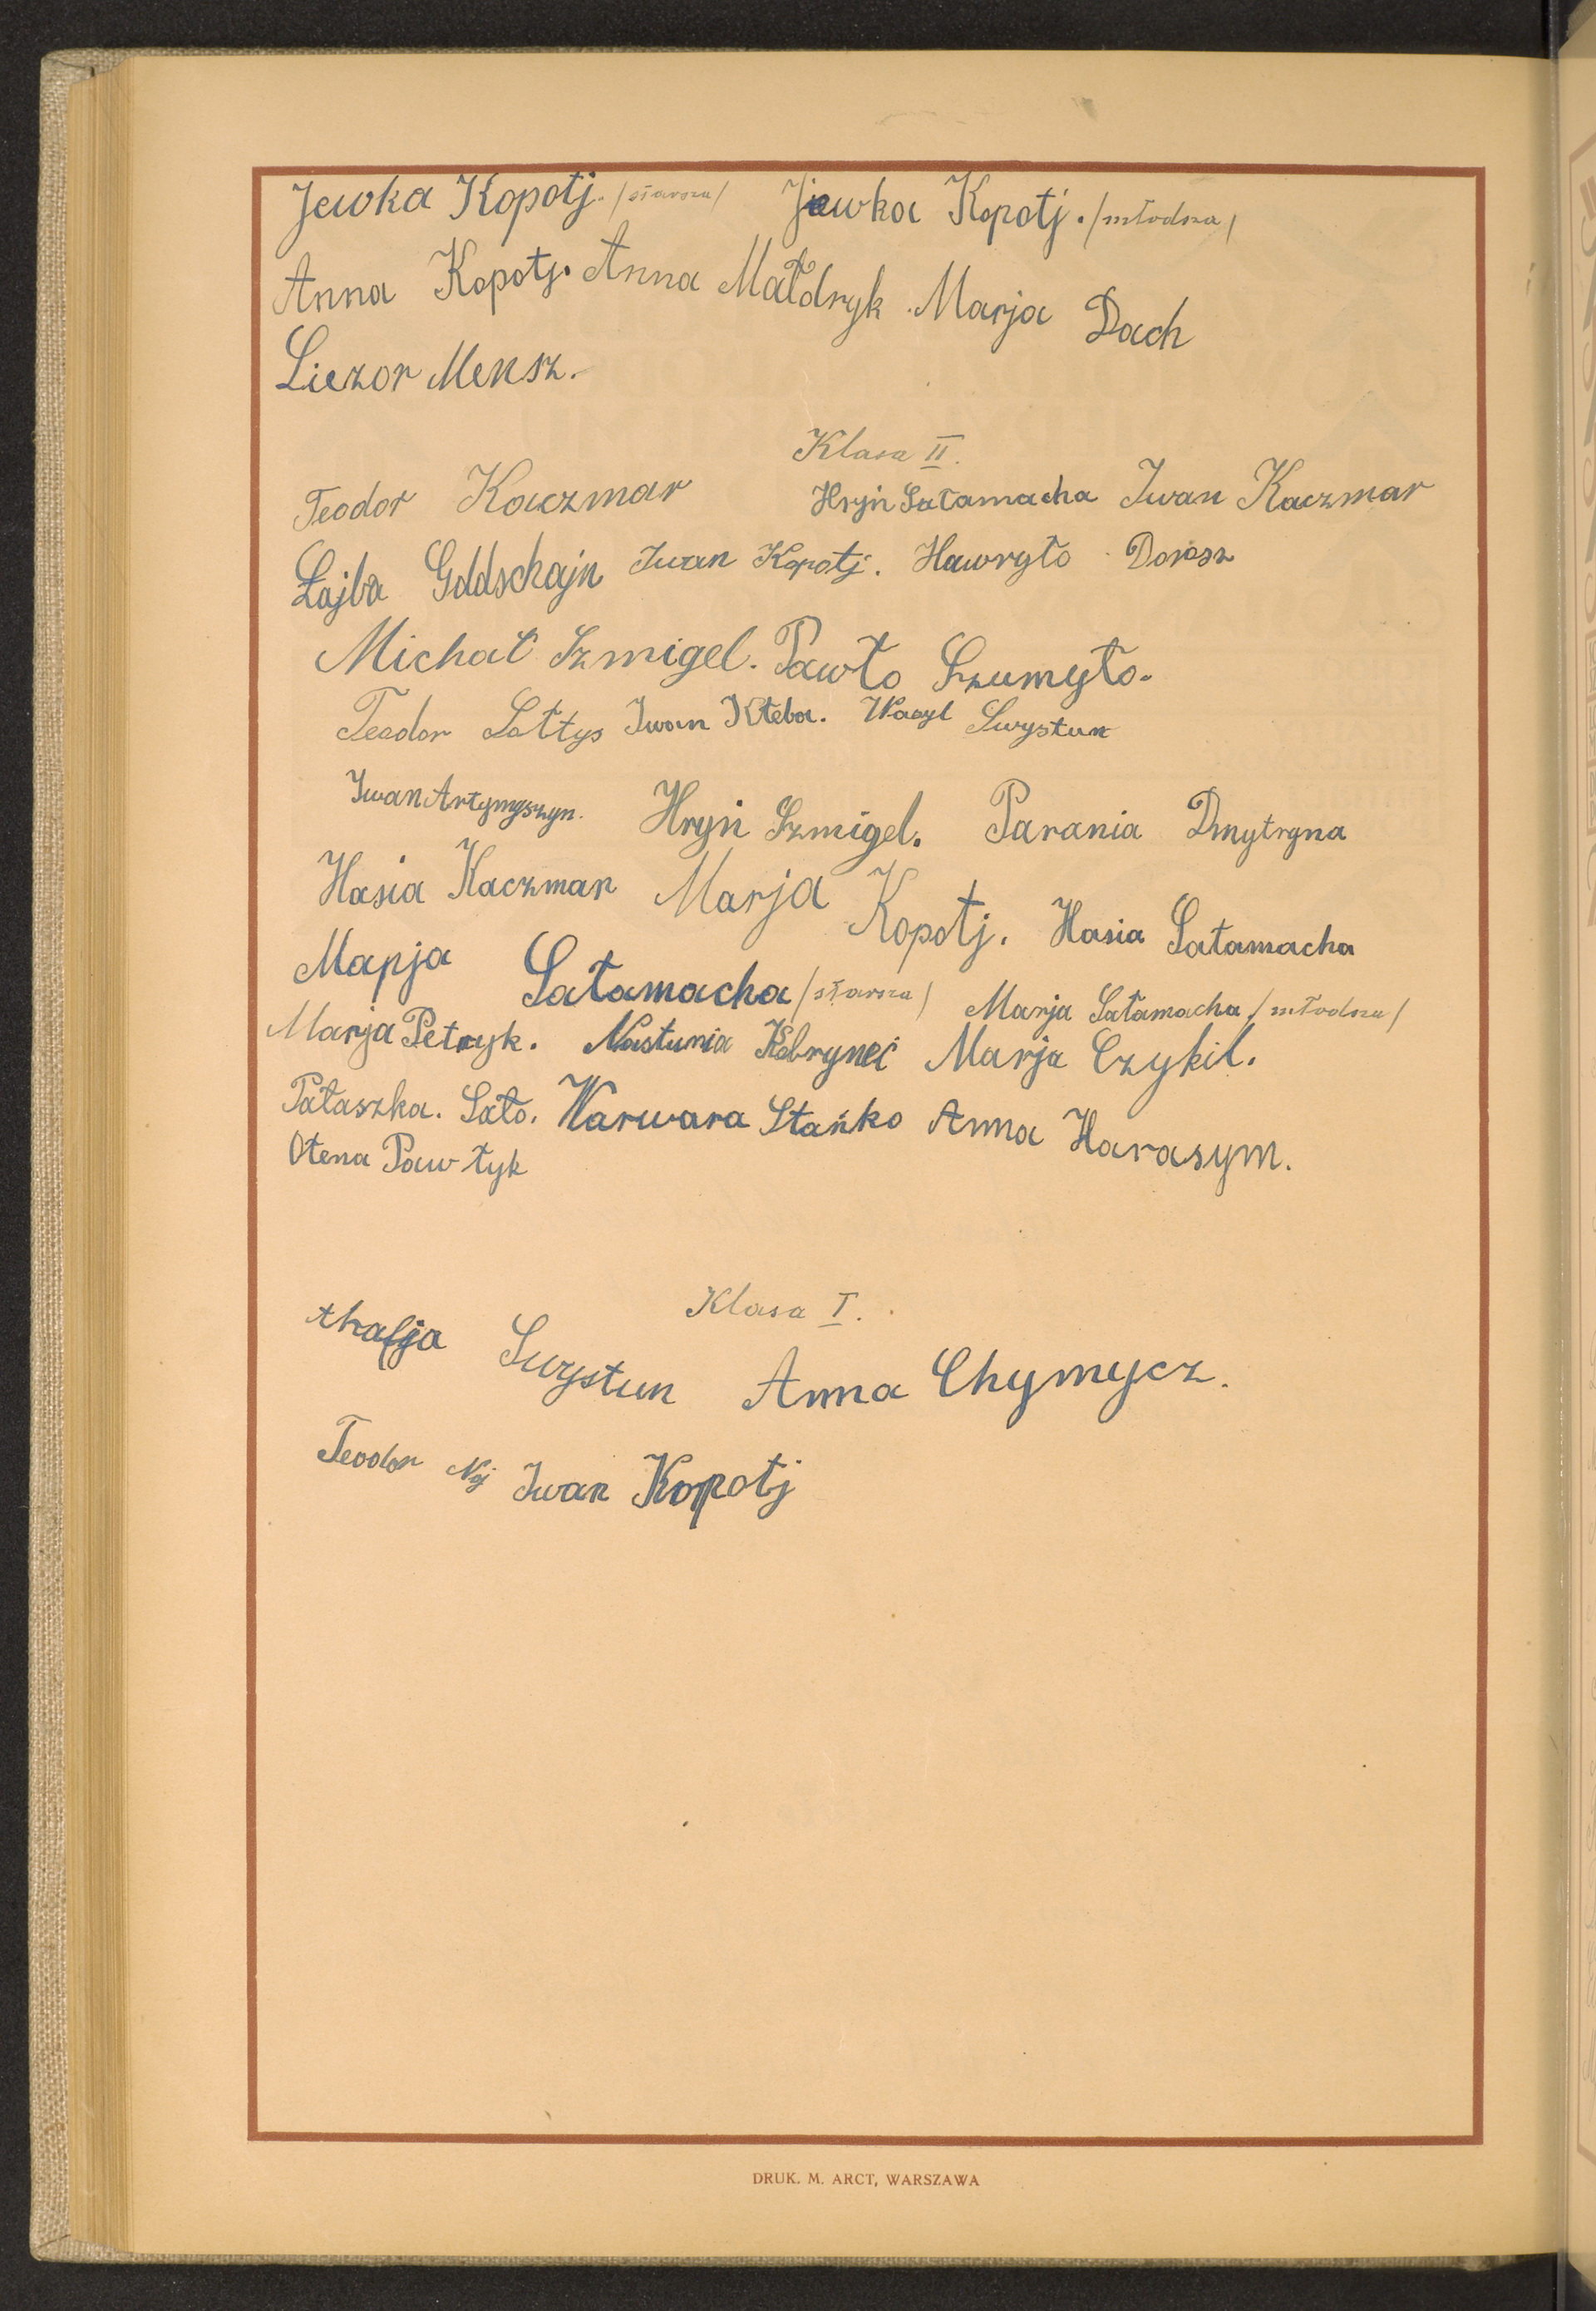 Jewka Kopotj. /starsza/ Jewka Kopotj. /młodsza/
Anna Kopotj. Anna Małdryk. Marja Dach
Liezor Mensz.
Klasa II.
Teodor Kaczmar Hryń Sałamacha Iwan Kaczmar
Łajba Goldschajn Iwan Kopotj. Hawryło Dorosz
Michał Szmigel. Pawło Szumyło.
Teodor Sołtys Iwan Kłeba. Wasyl Swystun
Iwan Artymyszyn. Hryń Szmigel. Parania Dmytryna
Hasia Kaczmar Marja Kopotj. Hasia Sałamacha
Marja Sałamacha /starsza/ Marja Sałamacha /młodsza/
Marja Petryk. Nastunia Kobryneć Marja Czykił.
Pałaszka. Sało. Warwara Stańko Anna Harasym.
Ołena Pawłyk
Klasa I.
Swystun Anna Chymycz.
Teodor Noj Iwan Kopotj
DRUK. M. ARCT, WARSZAWA